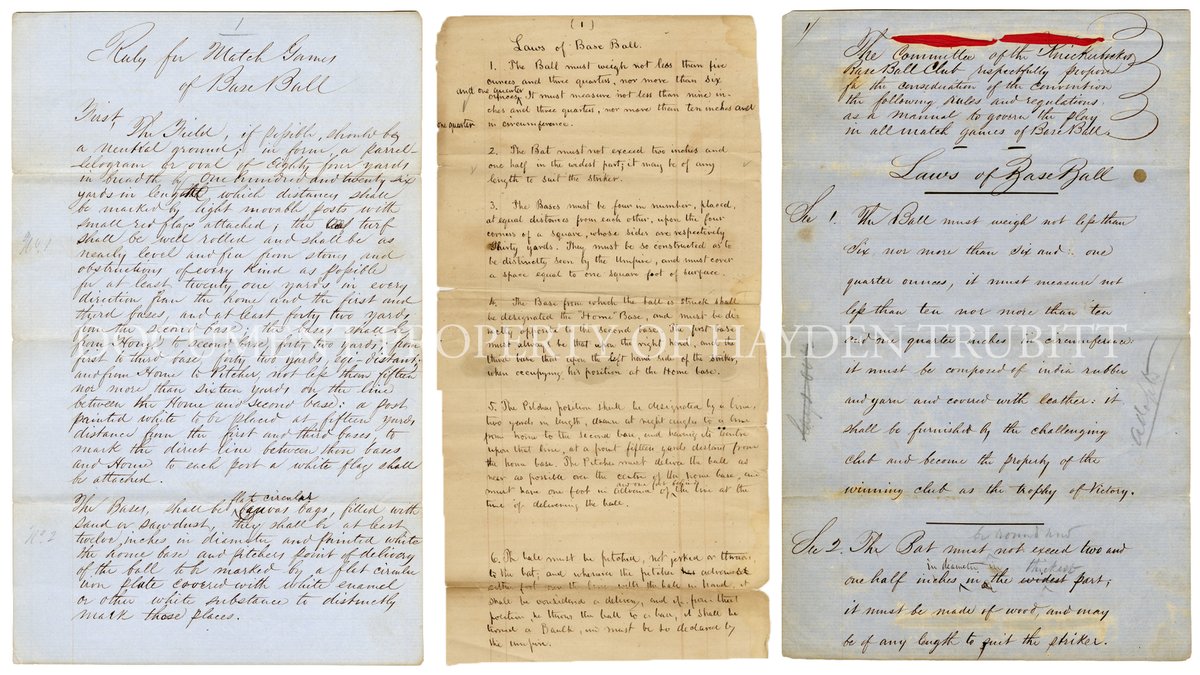 1
Rules for Match Games
of Base Ball
First
The Field, if possible, should be
a neutral ground; in form, a parrel-
lelogram or oval of Eighty four yards
in breadth by One hundred and twenty six
yards in length which distances shall
be marked by light movable posts with
small red flags attached; the turf
shall be well rolled and shall be as
nearly level and free from stones, and
obstructions of every kind as possible
for at least twenty one yards in every
direction from the home and the first and
third bases, and at least forty two yards
from the second base; the bases shall be
from Home to second base forty two yards; from
first to third base forty two yards equi-distant;
and from Home to Pitcher, not less than fifteen
nor more than sixteen yards on the line
between the Home and second base: a post
painted white to be placed at fifteen yards
distance from the first and third bases, to
mark the direct line between those bases
and Home to each post a white flag shall
be attached.
No 1
The Bases, shall be flat circular canvas bags, filled with
sand or sawdust, they shall be at least
twelve inches in diameter and painted white
the home base and pitchers point of delivery
of the ball to be marked by a flat circular
iron plate covered with white enamel
or other white substance to distinctly
mark those places.
No 2
(1)
Laws of Base Ball.
1. The Ball must weigh not less than five
ounces and three quarters, nor more than six
and one quarter
ounces. It must measure not less than nine in-
ches and three quarters, nor more than ten inches and
one quarter
in circumference.
2. The Bat must not exceed two inches and
one half in the widest part; it may be of any
length to suit the striker.
3. The Bases must be four in number, placed
at equal distances from each other, upon the four
corners of a square, whose sides are respectively
thirty yards. They must be so constructed as to
be distinctly seen by the Umpire, and must cover
a space equal to one square foot of surface.
4. The Base from which the ball is struck shall
be designated the Home Base, and must be di-
rectly opposite to the second base; the first base
must always be that upon the right hand, and the
third base that upon the left hand side of the striker,
when occupying his position at the Home base.
5. The Pitchers position shall be designated by a line,
two yards in length, drawn at right angles to a line
from home to the second base, and having its centre
upon that line, at a point fifteen yards distant from
the home base. The Pitcher must deliver the ball as
near as possible over the centre of the home base, and
must have one foot in advance of the line at the
time of delivering the ball.
6. The ball must be pitched, not jerked or thrown
to the bat, and whenever the pitcher advances
either foot over the line with the ball in hand, it
shall be considered a delivery, and if, from that
position, he throws the ball to a base, it shall be
termed a Baulk, and must be so declared by
the umpire.
1
The Committee of the Knickerbocker
Base Ball Club respectfully propose
for the consideration of the convention
the following rules and regulations
as a manual to govern the play
in all match games of Base Ball.
Laws of Base Ball
Sec 1. The Ball must weigh not less than
Six, nor more than six and one
quarter ounces, it must measure not
less than ten nor more than ten
and one quarter inches in circumference:
it must be composed of india rubber
and yarn and covered with leather: it
shall be furnished by the challenging
club and become the property of the
winning club as the trophy of Victory.
adopt
be round and
Sec 2. The Bat must not exceed two and
in diameter thickest
one half inches in the widest part;
it must be made of wood, and may
be of any length to suit the striker.
DOCUMENT PROPERTY OF HAYDEN TRUBITT